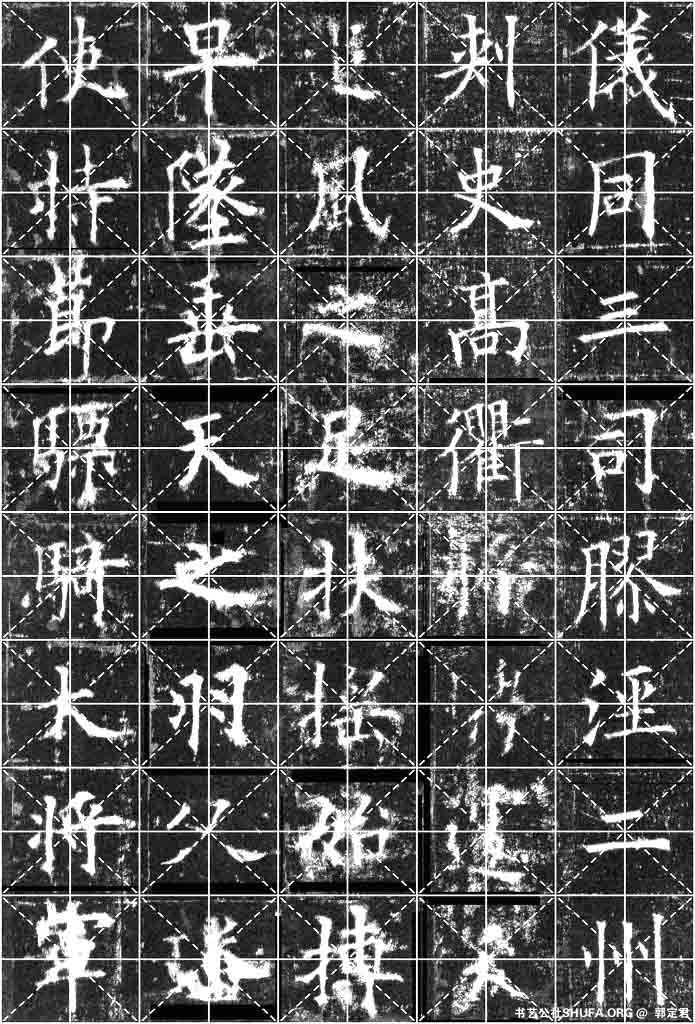 儀同三司膠涇二州
刺史髙衢
風之足扶搖始摶
早墜垂天之羽父
使持節驃騎大將軍
书艺公社SHUFA.ORG @ 郭定君